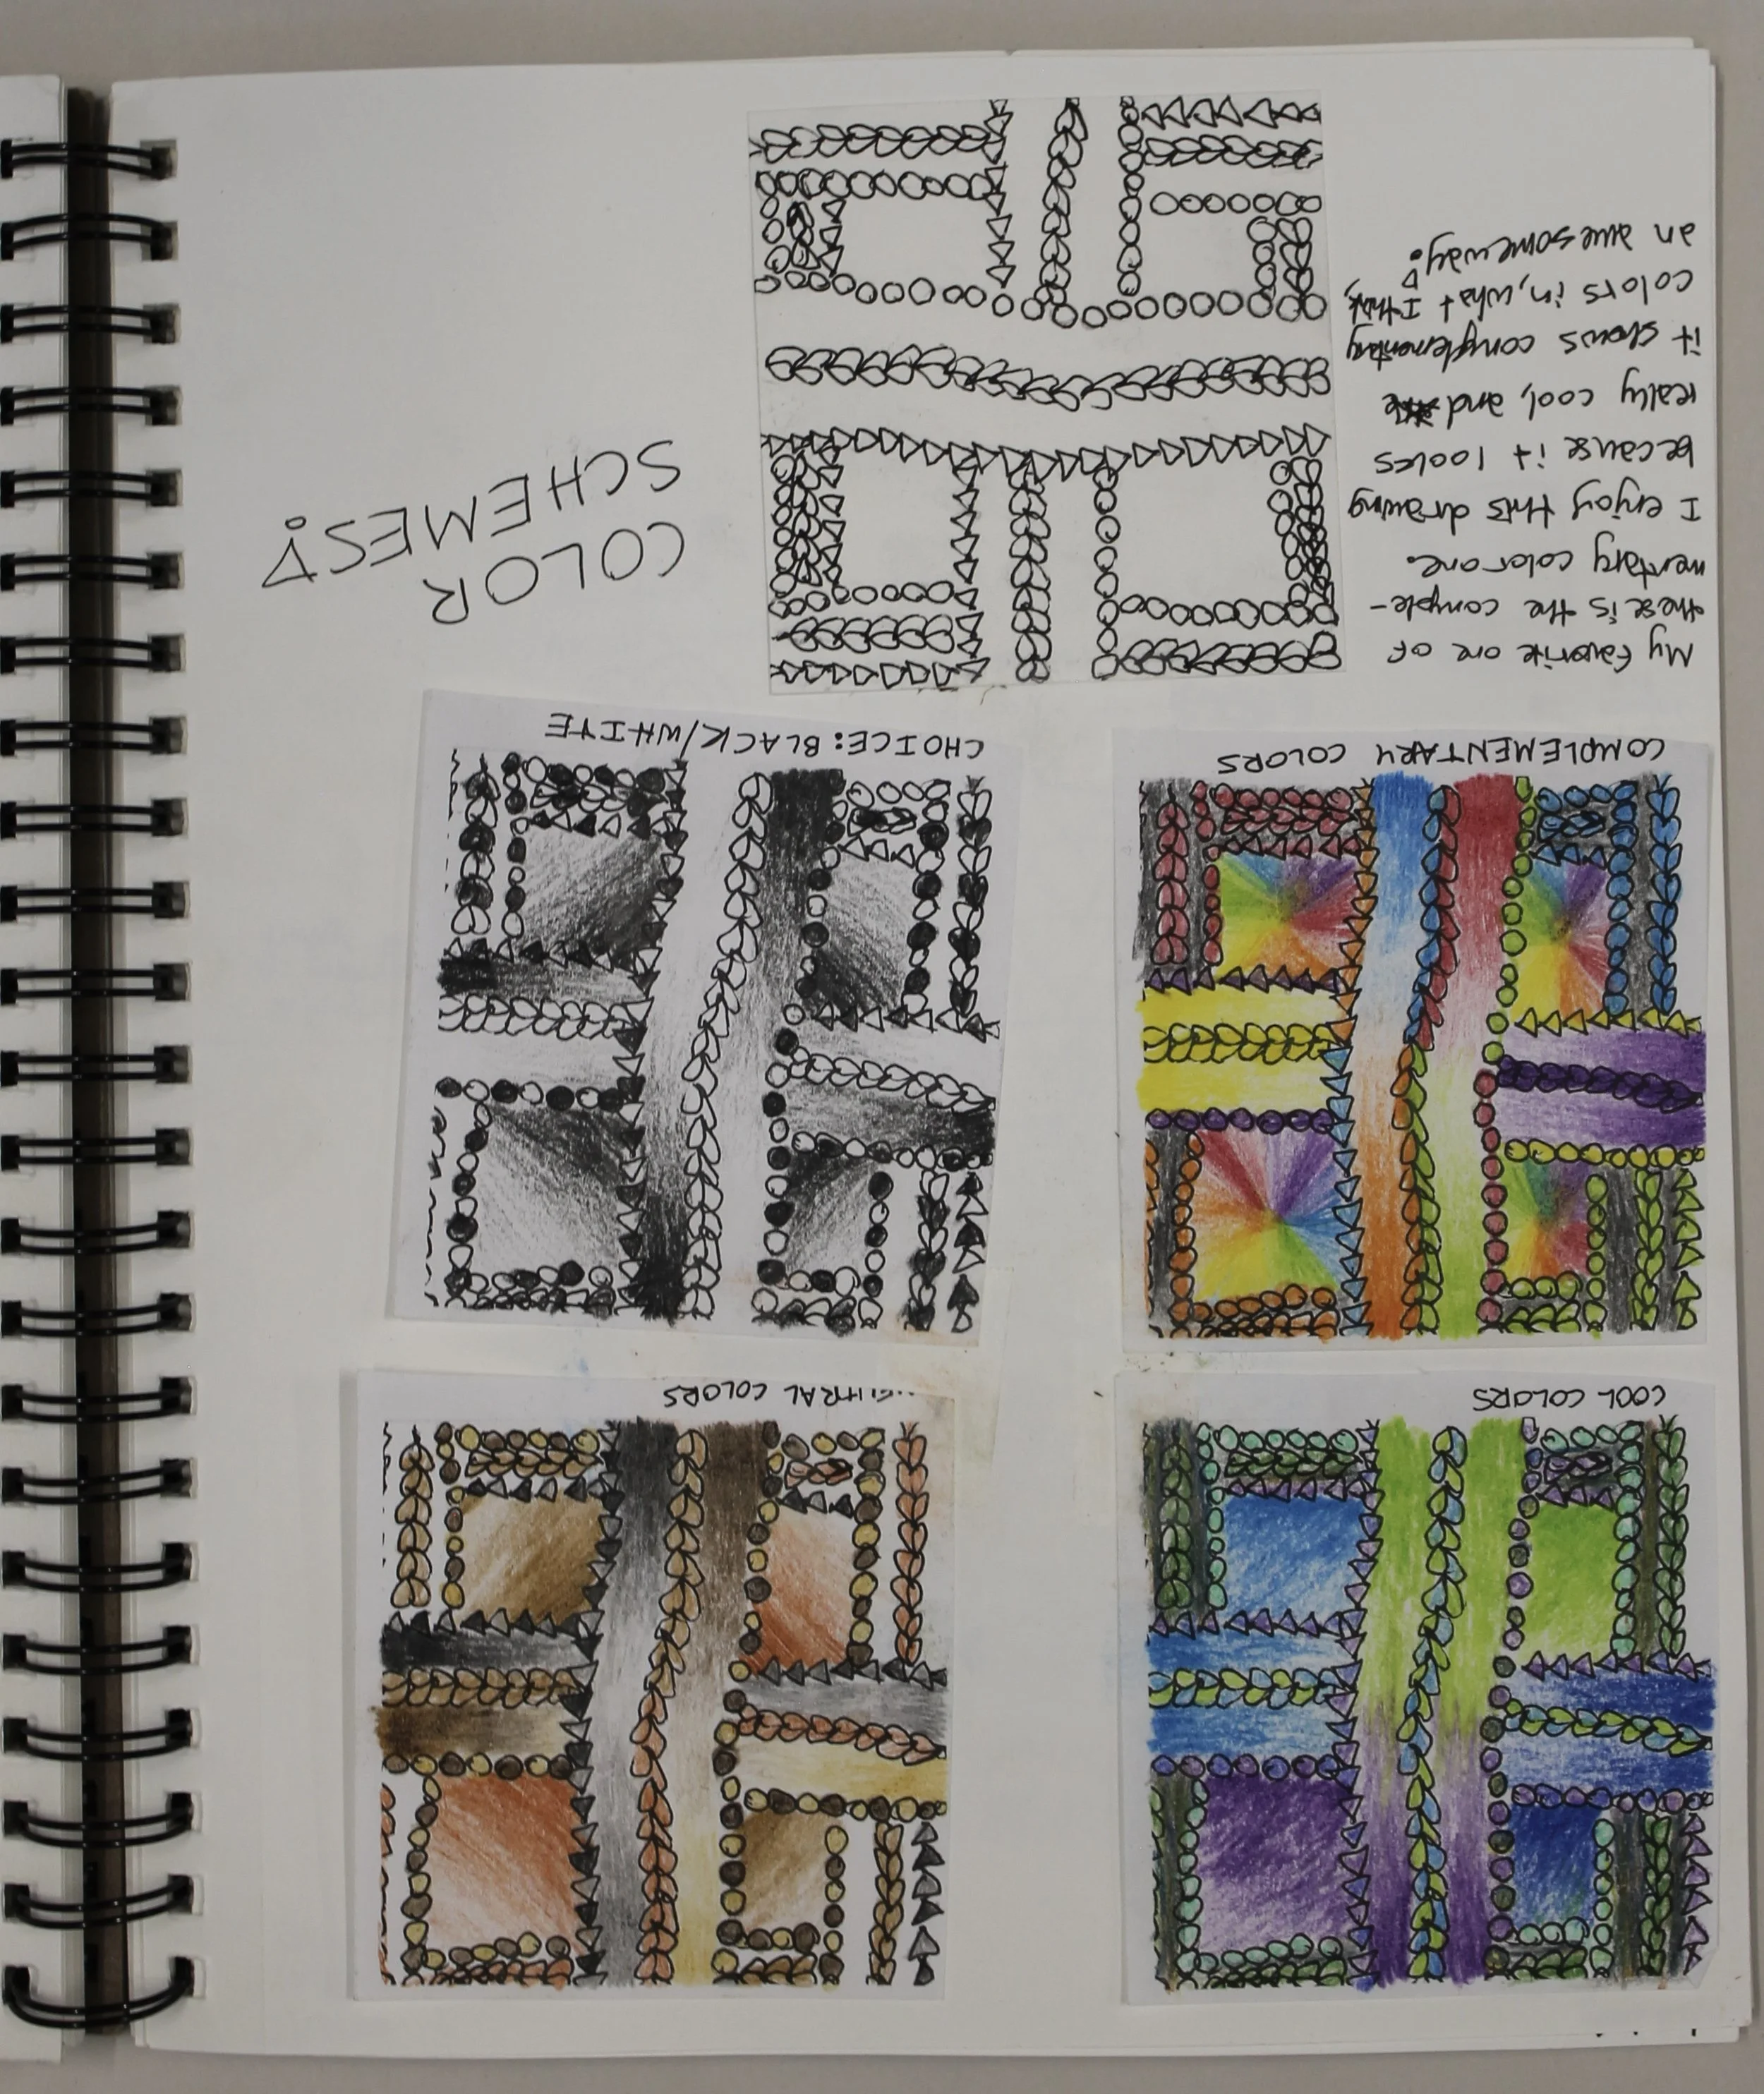 COOL COLORS
NEUTRAL COLORS
COMPLEMENTARY COLORS
CHOICE: BLACK/WHITE
My favorite one of
these is the comple-
mentary color one.
I enjoy this drawing
because it looks
really cool, and
it shows complementary
colors in, what I think,
an awesome way!
COLOR
SCHEMES!